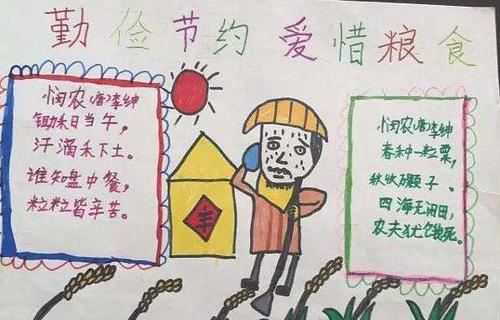 勤俭节约 爱惜粮食
悯农(唐)李绅
锄禾日当午,
汗滴禾下土。
谁知盘中餐,
粒粒皆辛苦。
丰
悯农(唐)李绅
春种一粒粟,
秋收万颗子。
四海无闲田,
农夫犹饿死。